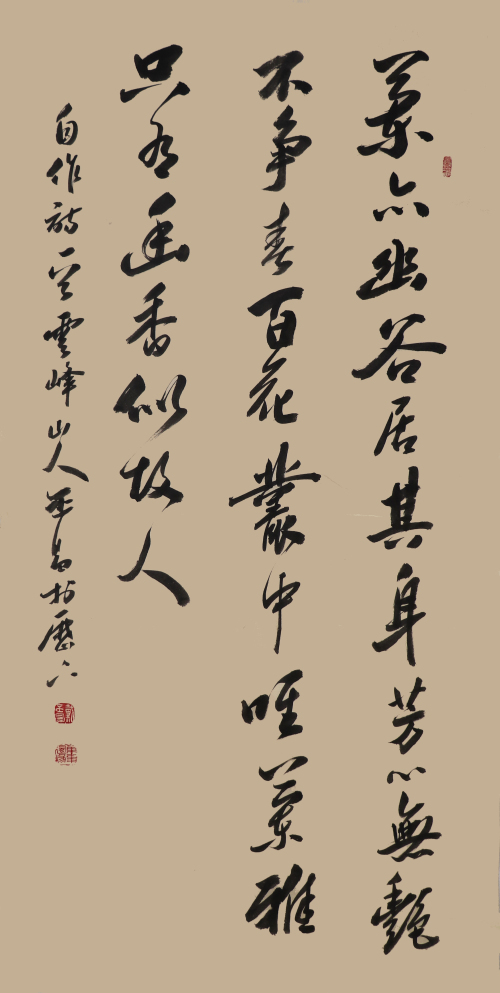 蘭亦幽谷居其身芳心無艷
不争春百花叢中唯蘭雅
只有幽香似故人
自作詩一首雲峰山人昌於歷下